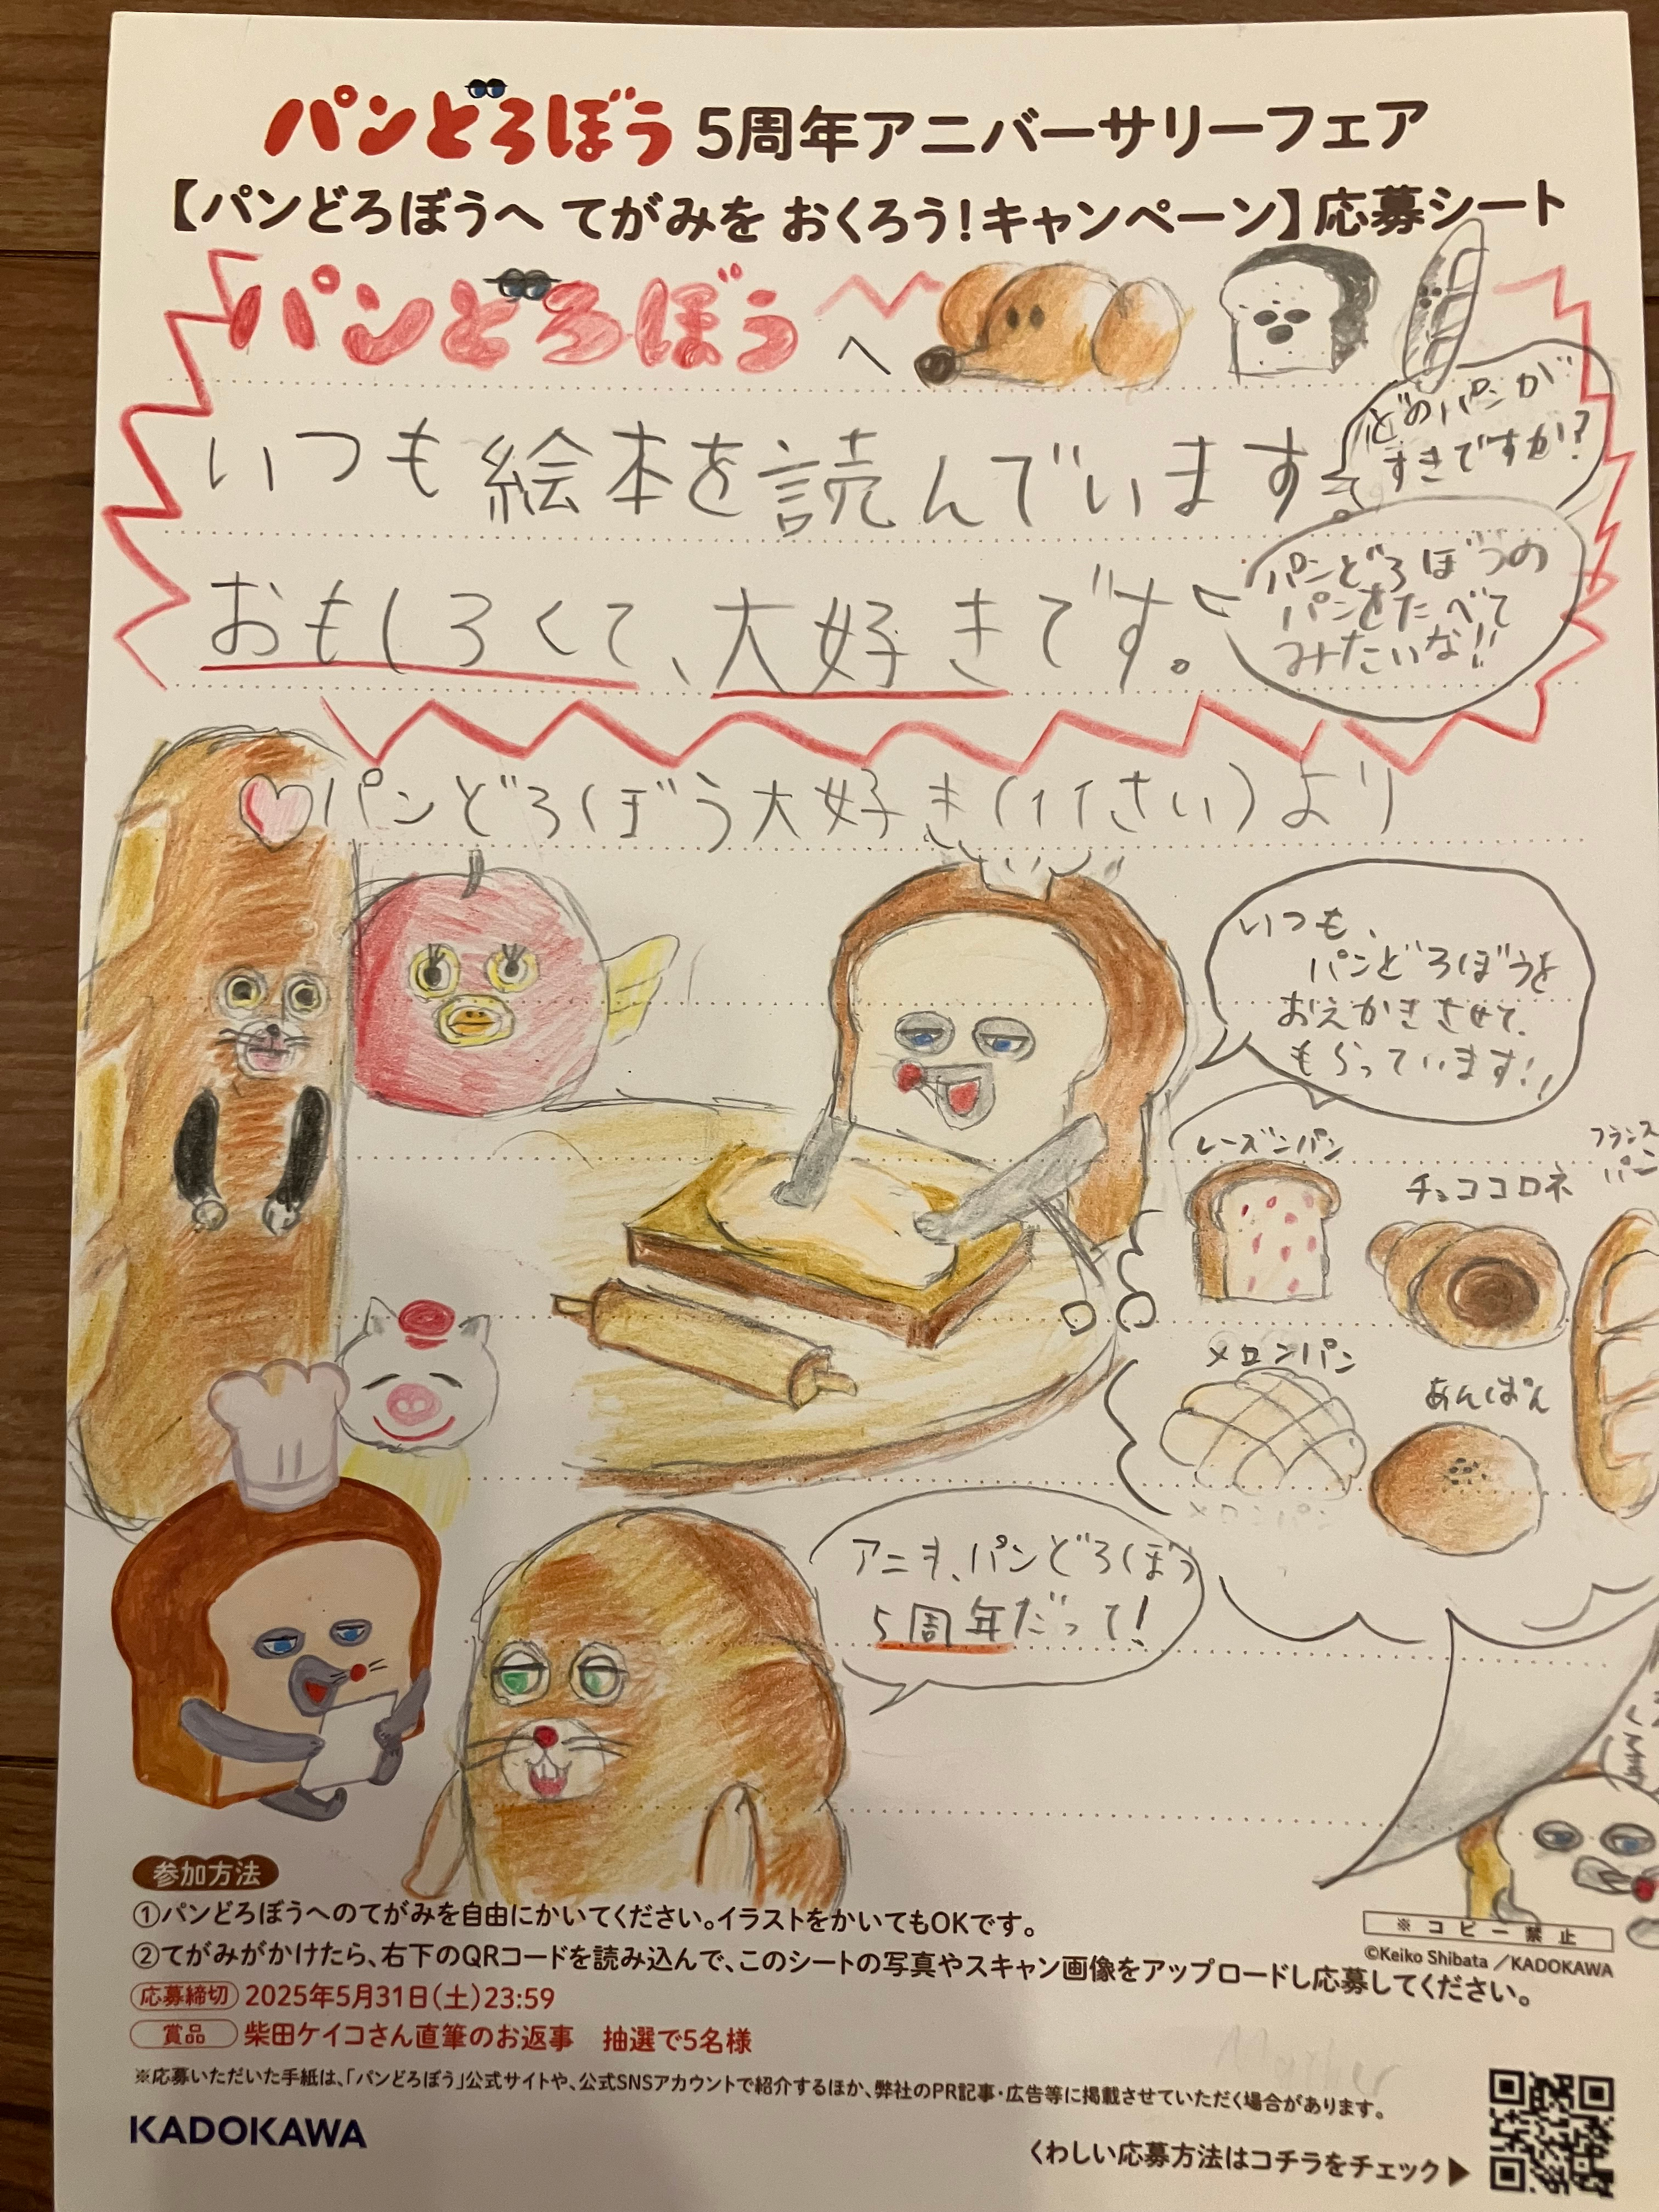 パンどろぼう 5周年アニバーサリーフェア
【パンどろぼうへ てがみを おくろう！キャンペーン】応募シート
パンどろぼうへ
どのパンが
すきですか？
いつも絵本を読んでいます。
おもしろくて、大好きです。
パンどろぼうの
パンをたべて
みたいな！！
パンどろぼう大好き（11さい）より
いつも、
パンどろぼうを
おえかきさせて
もらっています！！
レーズンパン
チョココロネ
フランス
パン
メロンパン
あんぱん
メロンパン
アニキ、パンどろぼう
5周年だって！
参加方法
①パンどろぼうへのてがみを自由にかいてください。イラストをかいてもOKです。
②てがみがかけたら、右下のQRコードを読み込んで、このシートの写真やスキャン画像をアップロードし応募してください。
※コピー禁止
©Keiko Shibata／KADOKAWA
応募締切 2025年5月31日（土）23:59
賞品 柴田ケイコさん直筆のお返事 抽選で5名様
※応募いただいた手紙は、「パンどろぼう」公式サイトや、公式SNSアカウントで紹介するほか、弊社のPR記事・広告等に掲載させていただく場合があります。
KADOKAWA
くわしい応募方法はコチラをチェック▶